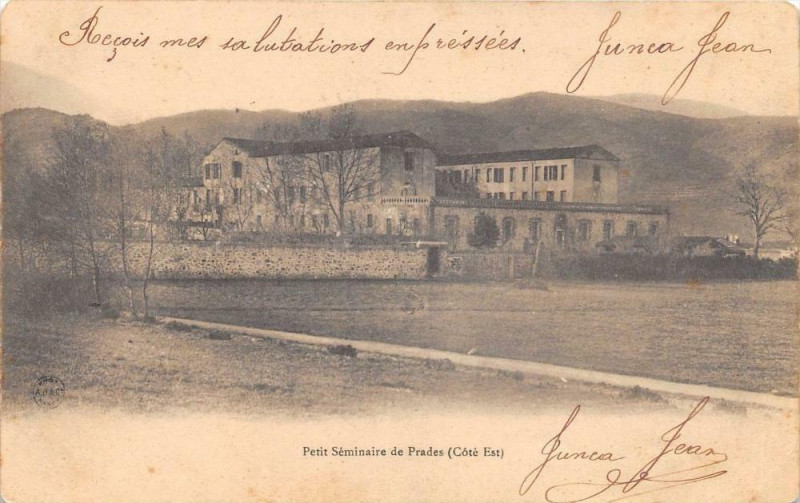 Reçois mes salutations empréssées. Junca Jean
Petit Séminaire de Prades (Côté Est)
Junca Jean